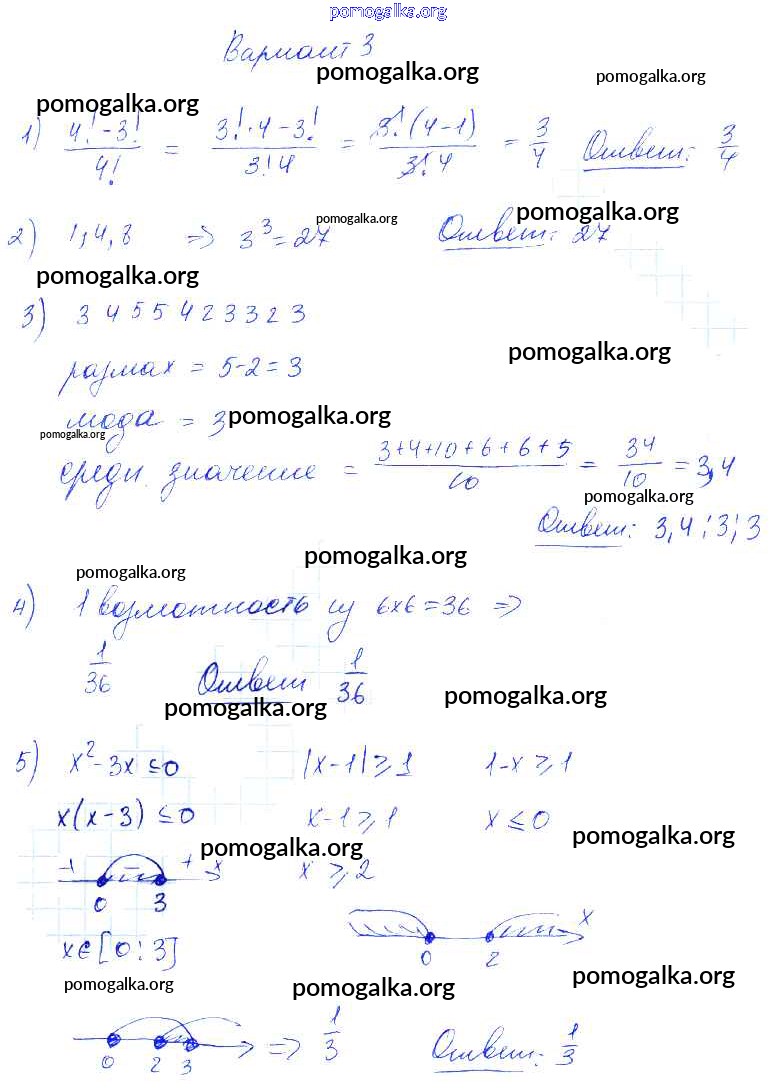 pomogalka.org
Вариант 3
pomogalka.org pomogalka.org
pomogalka.org
1) (4! - 3!)/4! = (3! · 4 - 3!)/(3! 4) = (3! (4-1))/(3! 4) = 3/4 Ответ: 3/4
pomogalka.org pomogalka.org
2) 1, 4, 8 => 3³ = 27 Ответ: 27
pomogalka.org
3) 3 4 5 5 4 2 3 3 2 3
pomogalka.org
размах = 5-2 = 3
мода = 3 pomogalka.org
pomogalka.org
средн. значение = (3+4+10+6+6+5)/10 = 34/10 = 3,4
pomogalka.org
Ответ: 3,4; 3; 3
pomogalka.org
pomogalka.org
4) 1 возможность из 6x6=36 =>
1/36 Ответ 1/36
pomogalka.org pomogalka.org
5) x² - 3x ≤ 0 |x-1| ≥ 1 1-x ≥ 1
x(x-3) ≤ 0 x-1 ≥ 1 x ≤ 0
pomogalka.org pomogalka.org
+ - + x x ≥ 2
0 3
x
0 2
x ∈ [0; 3]
pomogalka.org pomogalka.org pomogalka.org
0 2 3 => 1/3 Ответ: 1/3